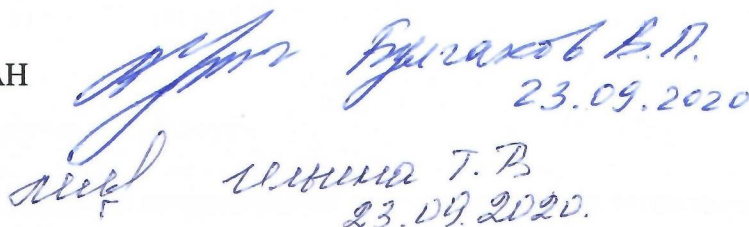 АН Булгаков В.П.
23.09.2020
Ильина Т.В
23.09.2020.